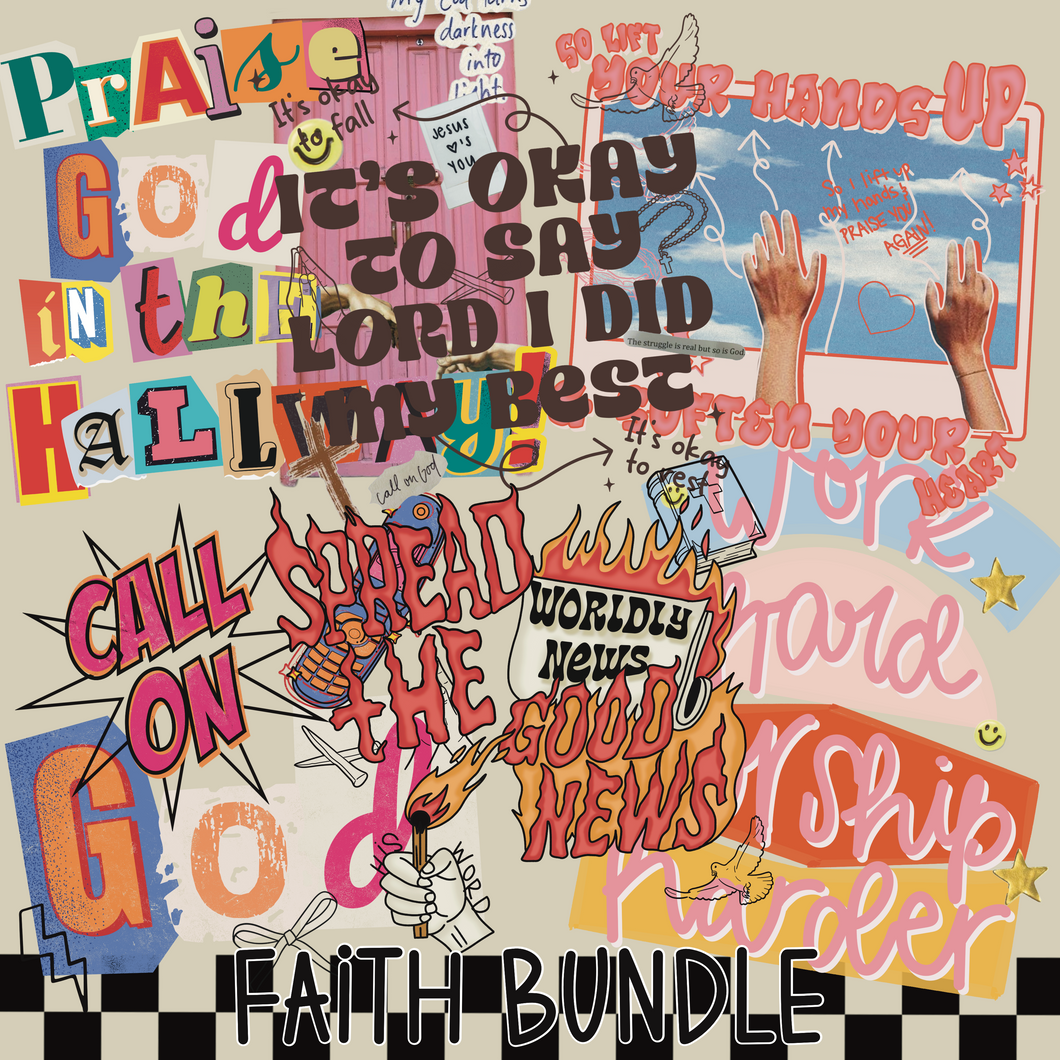 my God turns
darkness
into
light
Praise
God
in the
HALLWAY!
It's okay
to fall
Jesus
♥'s
YOU
IT'S OKAY
TO SAY
LORD I DID
MY BEST
The struggle is real but so is God
It's okay
to rest
call on God
SO LIFT
YOUR HANDS UP
So I lift up
my hands &
PRAISE YOU
AGAIN!
SOFTEN YOUR
HEART
CALL
ON
God
SPREAD
THE
WORLDLY
NEWS
GOOD
NEWS
HIS
WORD
Work
hard
worship
harder
FAiTH BUNDLE